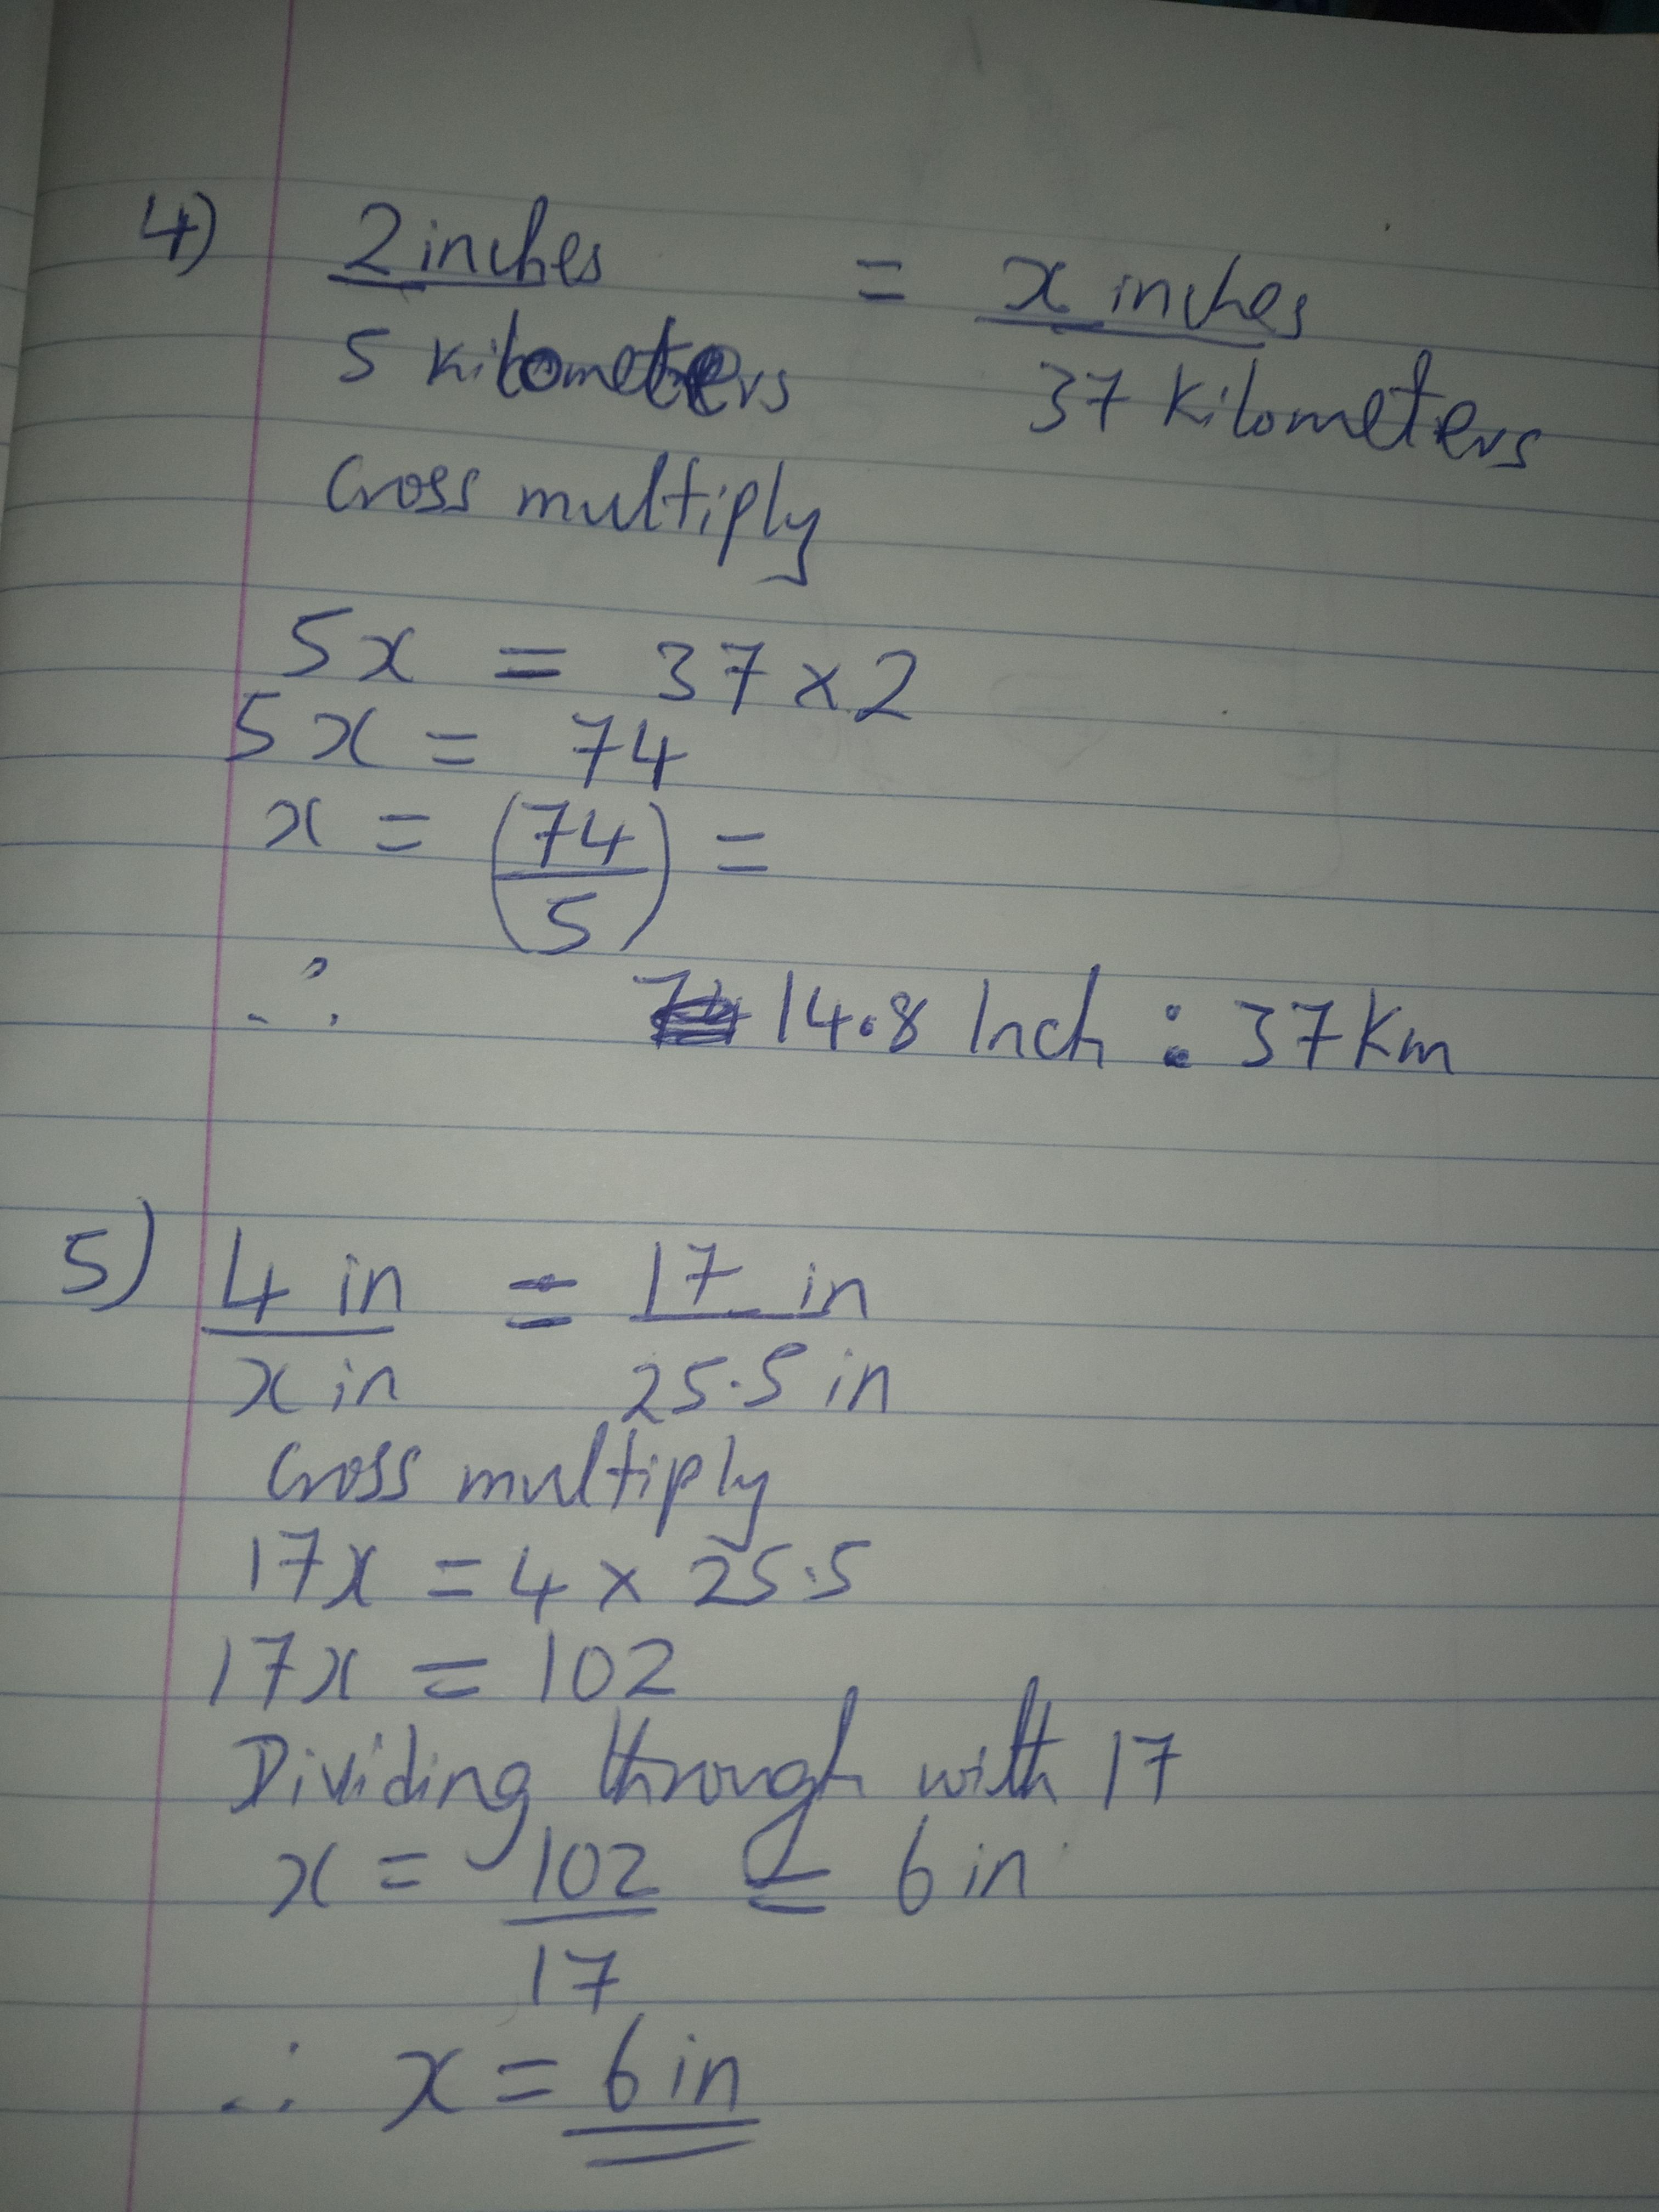 4) 2 inches = x inches
5 kilometers 37 kilometers
Cross multiply
5x = 37 × 2
5x = 74
x = (74/5) =
∴ 14.8 Inch : 37 Km
5) 4 in = 17 in
x in 25.5 in
Cross multiply
17x = 4 × 25.5
17x = 102
Dividing through with 17
x = 102 = 6 in
17
∴ x = 6 in